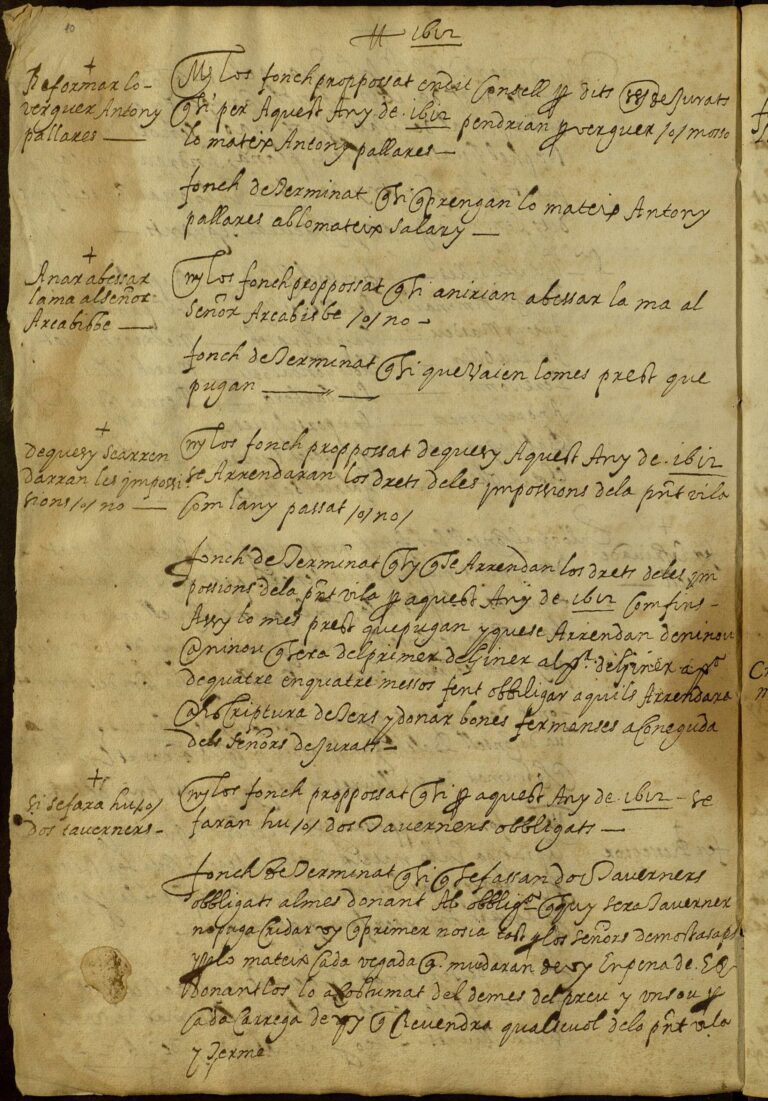 10
1612
Reformar lo
verguer Antony
pallares
Mes los fonch proppossat en dit Consell per dits señors de Jurats
que si per Aquest Any de 1612 pendrian per verguer /o/ mosso
lo mateix Antony pallares
fonch determinat que si que prengan lo mateix Antony
pallares ab lo mateix salary
Anar abessar
la ma al señor
Arcabisbe
mes los fonch proppossat que si anirian abessar la ma al
señor Arcabisbe /o/ no
fonch determinat que si que vaien lo mes prest que
pugan
de quesy se arren
darran les imposi
sions /o/ no
mes los fonch proppossat de quesy Aquest Any de 1612
se Arrendaran los drets deles imposions dela pnt vila
Com lany passat /o/ no/
fonch determinat que sy que se Arrendan los drets deles im
possions dela pnt vila per aquest Any de 1612 Com fins
Assy lo mes prest que pugan y que se Arrendan de ninou
a ninou que sera del primer de Giner al pr. de Giner a
de quatre en quatre messos fent obbligar aquils Arrendara
ab scriptura de ters y donar bones fermanses a Coneguda
dels señors de Jurats
si se fara hu /o/
dos taverners
mes los fonch proppossat que si per aquest Any de 1612 se
faran hu /o/ dos taverners obbligats
fonch determinat que si que se fassan dos taverners
obbligats almes donant Al obbligat que qui sera taverner
no puga Cridar vy que primer no sia tast per los señors de mostasaps
y per lo mateix Cada vegada que mudaran de vy En pena de
donantlos lo acostumat del demes del preu y un sou per
Cada Carrega de vy que Revendra qualsevol dela pnt vila
y terme